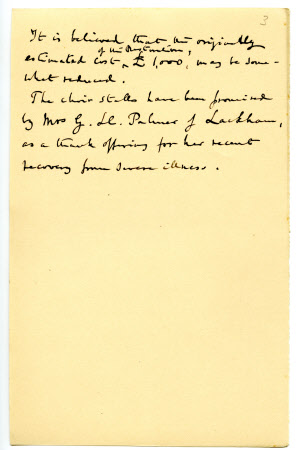 3
It is believed that the originally
of the Restoration,
estimated cost £1,000, may be some-
what reduced.
The choir stalls have been promised
by Mrs G. Ll. Palmer of Lackham,
as a thank offering for her recent
recovery from severe illness.